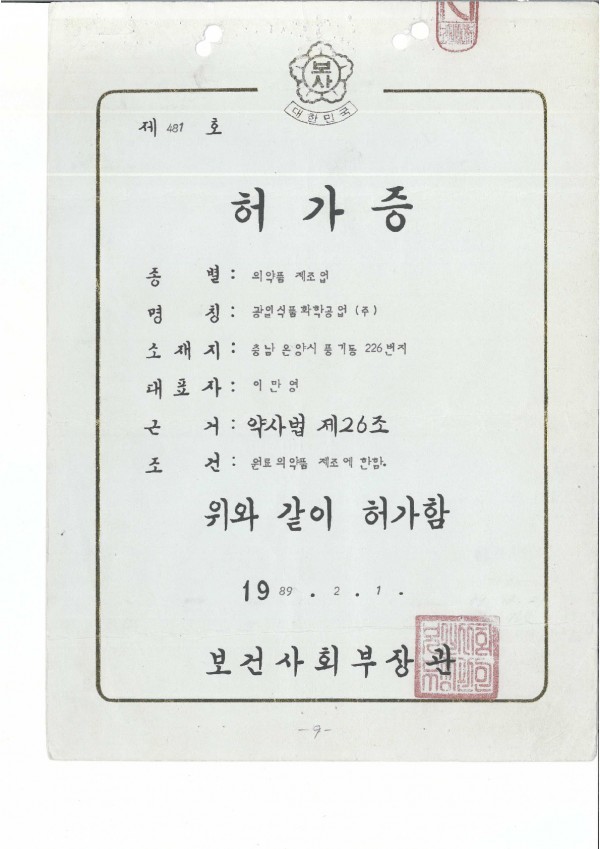 보사
대한민국
제 481 호
허가증
종별 : 의약품 제조업
명칭 : 광일식품화학공업 (주)
소재지 : 충남 온양시 풍기동 226번지
대표자 : 이만영
근거 : 약사법 제26조
조건 : 원료의약품 제조에 한함.
위와 같이 허가함
1989 . 2 . 1 .
보건사회부장관
-9-